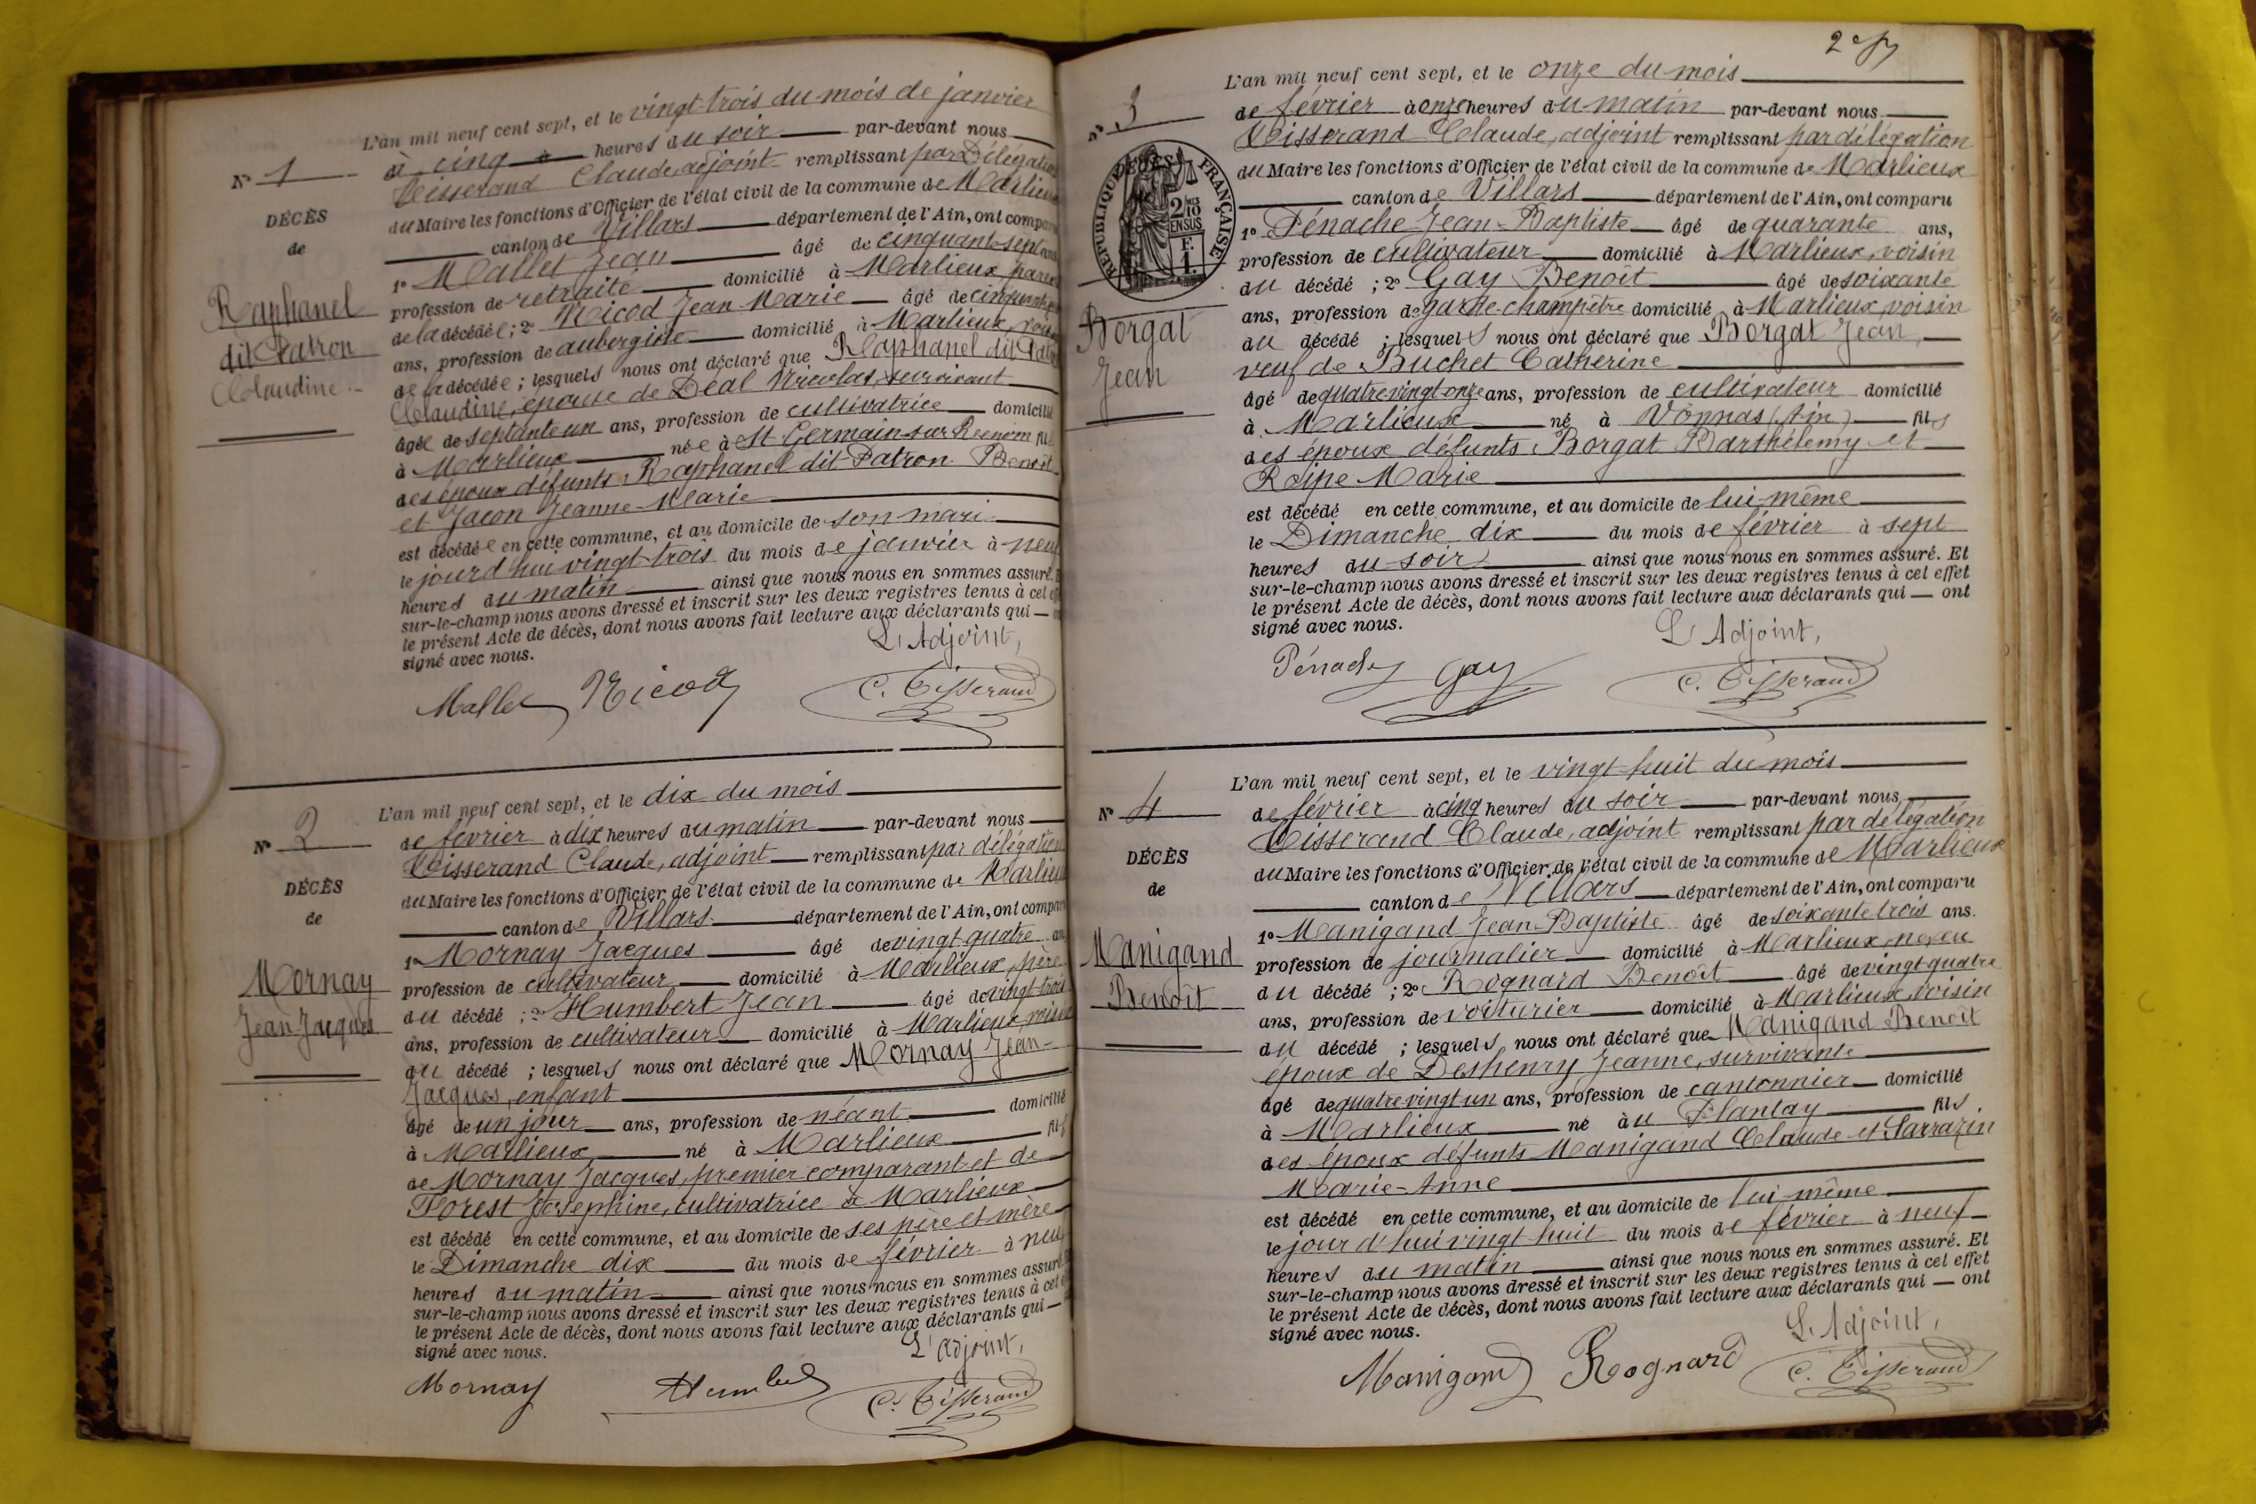 L'an mil neuf cent sept, et le vingt-trois du mois de janvier
à cinq heures du soir par-devant nous
Tisserand Claude, adjoint remplissant par Délégation
du Maire les fonctions d'Officier de l'état civil de la commune de Marlieux
canton de Villars département de l'Ain, ont comparu
1° Mallet Jean âgé de cinquante-sept ans
profession de retraité domicilié à Marlieux, parent
de la décédée ; 2° Nicod Jean-Marie âgé de
ans, profession de aubergiste domicilié à Marlieux, voisin
de la décédée ; lesquels nous ont déclaré que Raphanel dit Patron
Claudine, épouse de Déal Nicolas, survivant
âgée de septante un ans, profession de cultivatrice domicilié
à Marlieux née à St Germain-sur-Renom fille
des époux défunts Raphanel dit Patron Benoît
et Jacon Jeanne-Marie
est décédée en cette commune, et au domicile de son mari
le jourd'hui vingt-trois du mois de janvier à neuf
heures du matin ainsi que nous nous en sommes assuré.
sur-le-champ nous avons dressé et inscrit sur les deux registres tenus à cet effet
le présent Acte de décès, dont nous avons fait lecture aux déclarants qui — ont
signé avec nous.
L'Adjoint,
Mallet Nicod C. Tisserand
N° 1
DÉCÈS
de
Raphanel
dit Patron
Claudine
L'an mil neuf cent sept, et le dix du mois
de février à dix heures du matin par-devant nous
Tisserand Claude, adjoint remplissant par délégation
du Maire les fonctions d'Officier de l'état civil de la commune de Marlieux
canton de Villars département de l'Ain, ont comparu
1° Mornay Jacques âgé de vingt quatre ans
profession de cultivateur domicilié à Marlieux, père
du décédé ; 2° Humbert Jean âgé de vingt-trois
ans, profession de cultivateur domicilié à Marlieux, voisin
du décédé ; lesquels nous ont déclaré que Mornay Jean-
Jacques, enfant
âgé de un jour ans, profession de néant domicilié
à Marlieux né à Marlieux fils
de Mornay Jacques, premier comparant et de
Forest Joséphine, cultivatrice à Marlieux
est décédé en cette commune, et au domicile de ses père et mère
le Dimanche dix du mois de février à neuf
heures du matin ainsi que nous nous en sommes assuré.
sur-le-champ nous avons dressé et inscrit sur les deux registres tenus à cet effet
le présent Acte de décès, dont nous avons fait lecture aux déclarants qui —
signé avec nous.
L'Adjoint,
Mornay Humbert C. Tisserand
N° 2
DÉCÈS
de
Mornay
Jean-Jacques
2e
L'an mil neuf cent sept, et le onze du mois
de février à onze heures du matin par-devant nous
Tisserand Claude, adjoint remplissant par délégation
du Maire les fonctions d'Officier de l'état civil de la commune de Marlieux
canton de Villars département de l'Ain, ont comparu
1° Pénache Jean-Baptiste âgé de quarante ans,
profession de cultivateur domicilié à Marlieux, voisin
du décédé ; 2° Gay Benoît âgé de soixante
ans, profession de garde-champêtre domicilié à Marlieux, voisin
du décédé ; lesquels nous ont déclaré que Borgat Jean,
veuf de Buchet Catherine
âgé de quatre vingt onze ans, profession de cultivateur domicilié
à Marlieux né à Vonnas (Ain) fils
des époux défunts Borgat Barthélemy et
Marie
est décédé en cette commune, et au domicile de lui-même
le Dimanche dix du mois de février à sept
heures du soir ainsi que nous nous en sommes assuré. Et
sur-le-champ nous avons dressé et inscrit sur les deux registres tenus à cet effet
le présent Acte de décès, dont nous avons fait lecture aux déclarants qui — ont
signé avec nous.
L'Adjoint,
Pénache Gay C. Tisserand
N° 3
RÉPUBLIQUE FRANÇAISE
2/10 EN SUS
F.
1.
Borgat
Jean
L'an mil neuf cent sept, et le vingt-huit du mois
de février à cinq heures du soir par-devant nous
Tisserand Claude, adjoint remplissant par délégation
du Maire les fonctions d'Officier de l'état civil de la commune de Marlieux
canton de Villars département de l'Ain, ont comparu
1° Manigand Jean-Baptiste âgé de soixante trois ans.
profession de journalier domicilié à Marlieux, neveu
du décédé ; 2° Rognard Benoît âgé de vingt-quatre
ans, profession de voiturier domicilié à Marlieux, voisin
du décédé ; lesquels nous ont déclaré que Manigand Benoît
époux de Deshenry Jeanne, survivante
âgé de quatre vingt un ans, profession de cantonnier domicilié
à Marlieux né au Plantay fils
des époux défunts Manigand Claude et Sarrazin
Marie-Anne
est décédé en cette commune, et au domicile de lui-même
le jour d'hui vingt huit du mois de février à neuf
heures du matin ainsi que nous nous en sommes assuré. Et
sur-le-champ nous avons dressé et inscrit sur les deux registres tenus à cet effet
le présent Acte de décès, dont nous avons fait lecture aux déclarants qui — ont
signé avec nous.
L'Adjoint,
Manigand Rognard C. Tisserand
N° 4
DÉCÈS
de
Manigand
Benoît